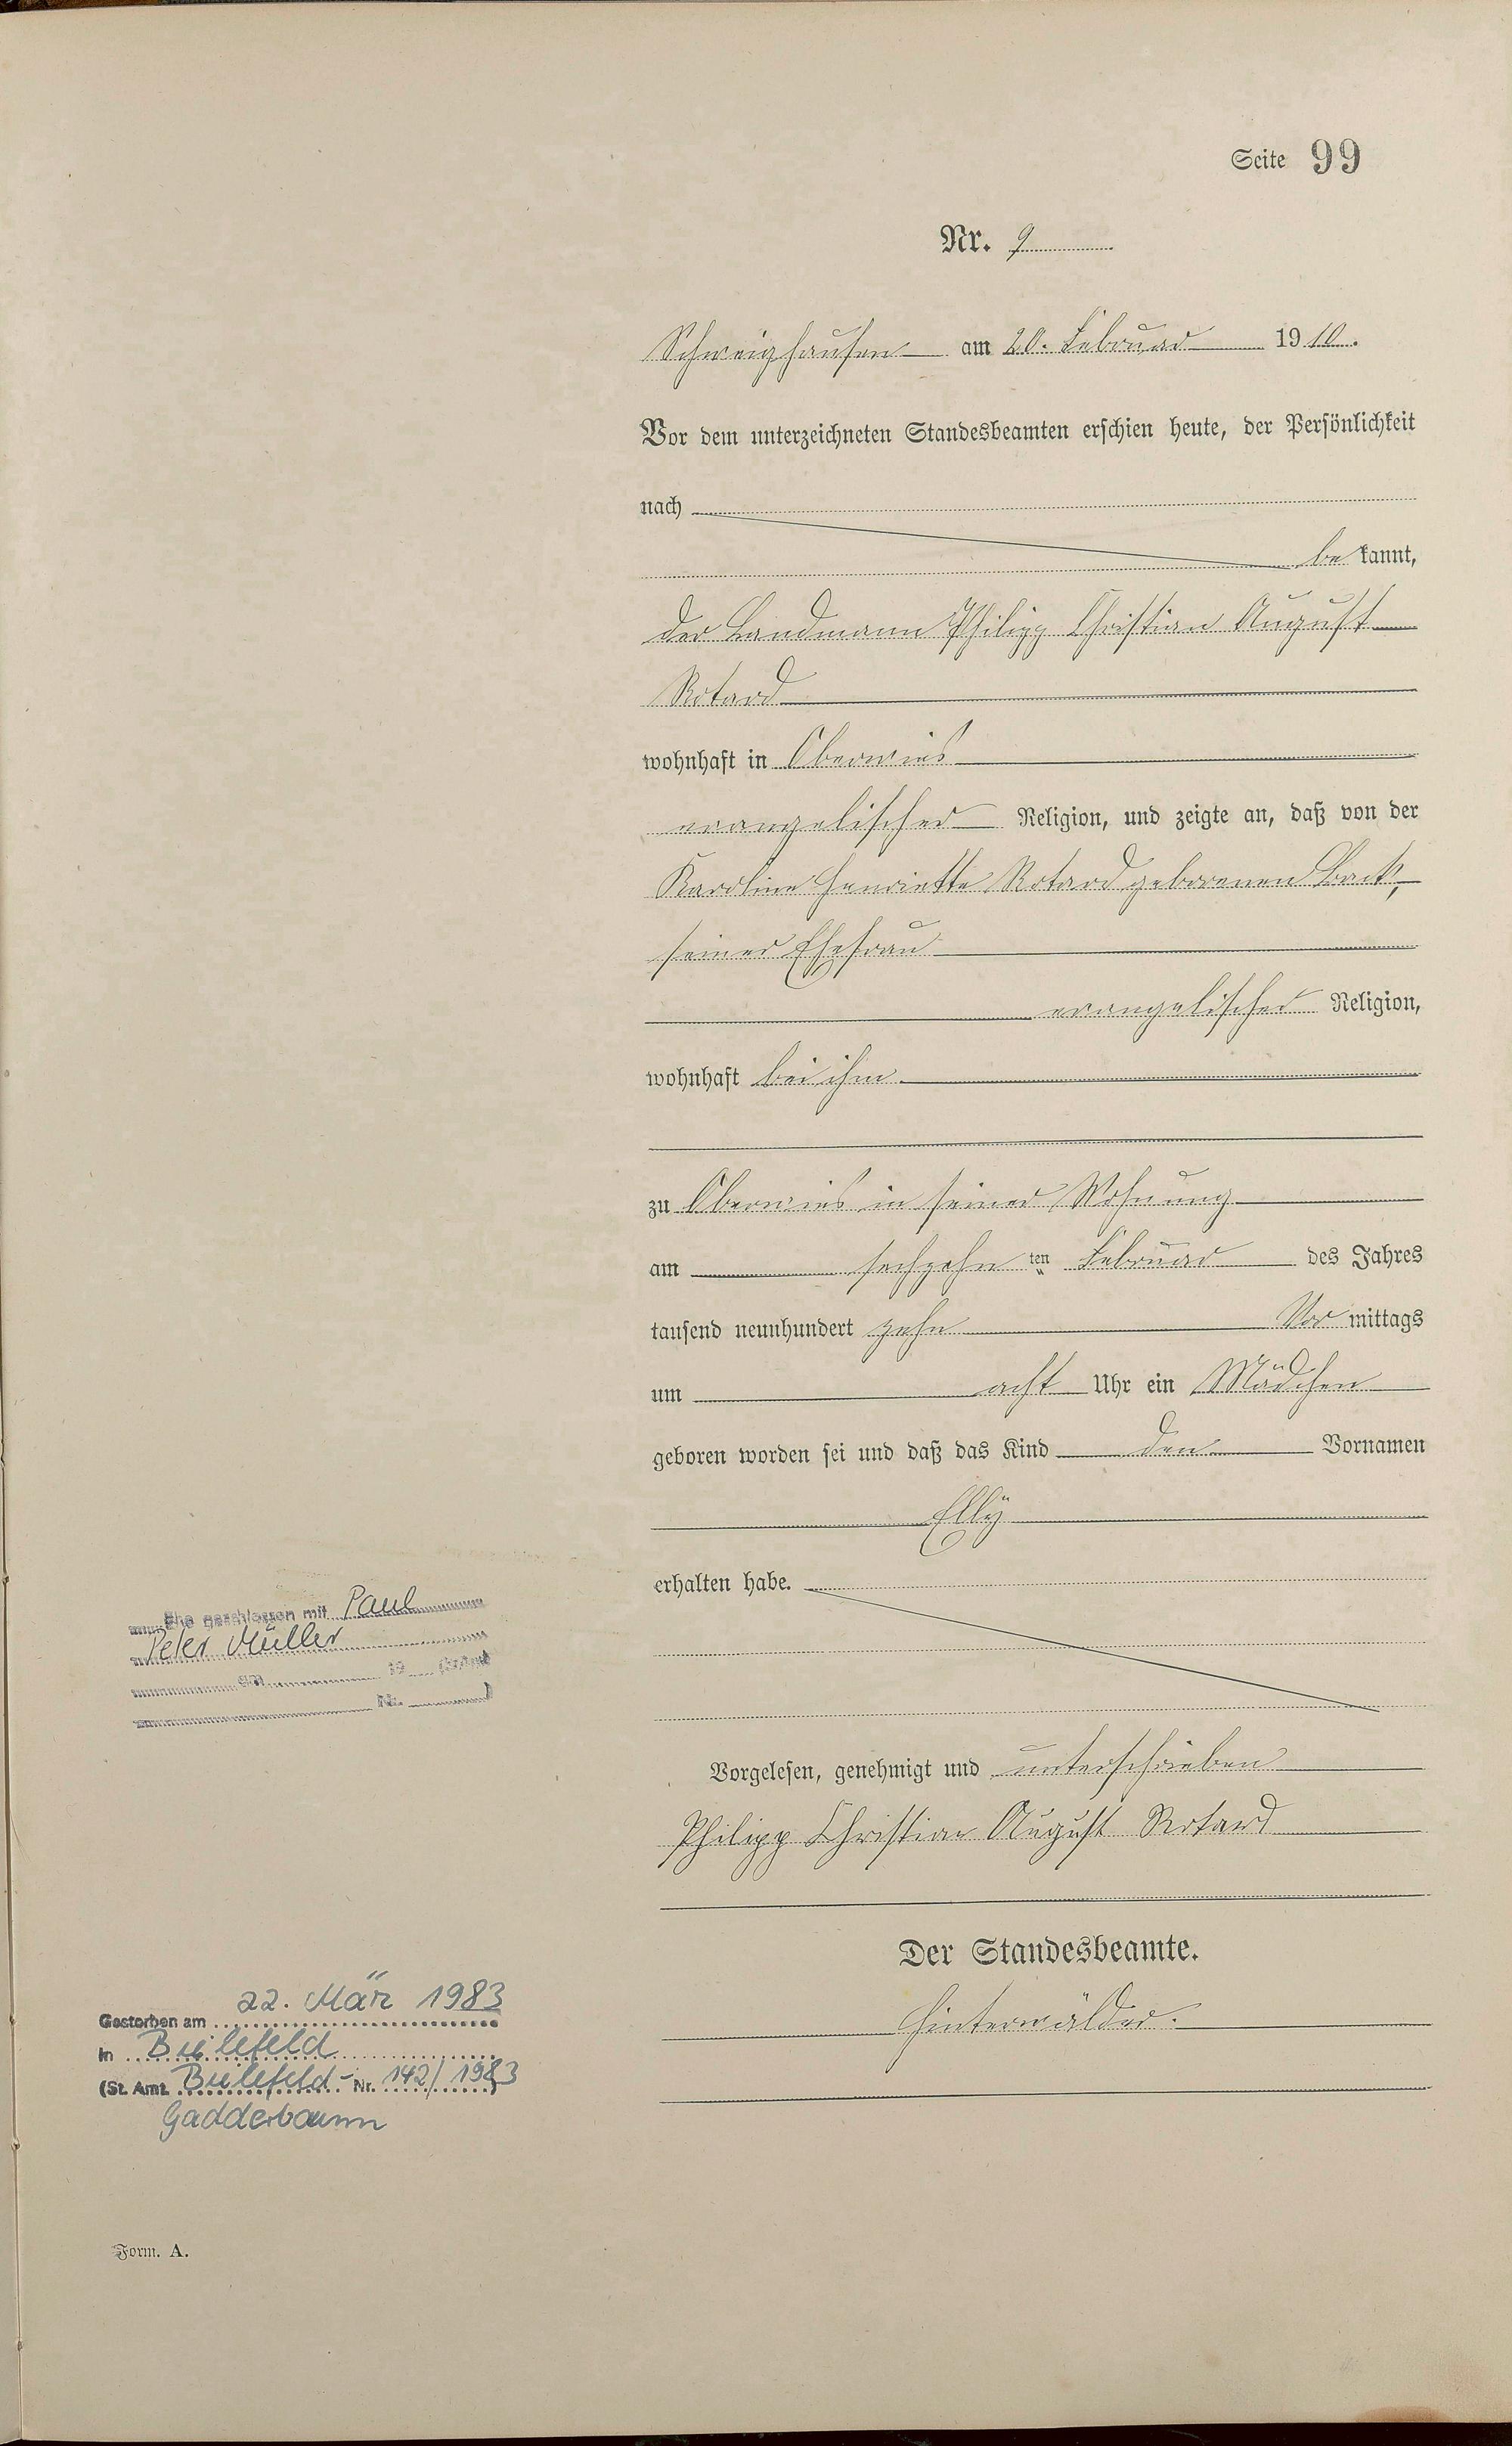 Seite 99
Nr. 9
Schweighausen am 20. Februar 1910.
Vor dem unterzeichneten Standesbeamten erschien heute, der Persönlichkeit
nach
be kannt,
der Landmann Philipp Christian August
Rotard
wohnhaft in Oberwies
evangelischer Religion, und zeigte an, daß von der
Karoline Henriette Rotard geborenen Back,
seiner Ehefrau
evangelischer Religion,
wohnhaft bei ihm
zu Oberwies in seiner Wohnung
am sechzehn ten Februar des Jahres
tausend neunhundert zehn Vor mittags
um acht Uhr ein Mädchen
geboren worden sei und daß das Kind den Vornamen
Elly
erhalten habe.
Vorgelesen, genehmigt und unterschrieben
Philipp Christian August Rotard
Der Standesbeamte.
Hinterwälder.
Ehe geschlossen mit Paul
Peter Müller
am 19 (St.Amt
Nr. )
22. März 1983
Gestorben am
in Bielefeld
(St. Amt Bielefeld- Nr. 142/1983)
Gadderbaum
Form. A.